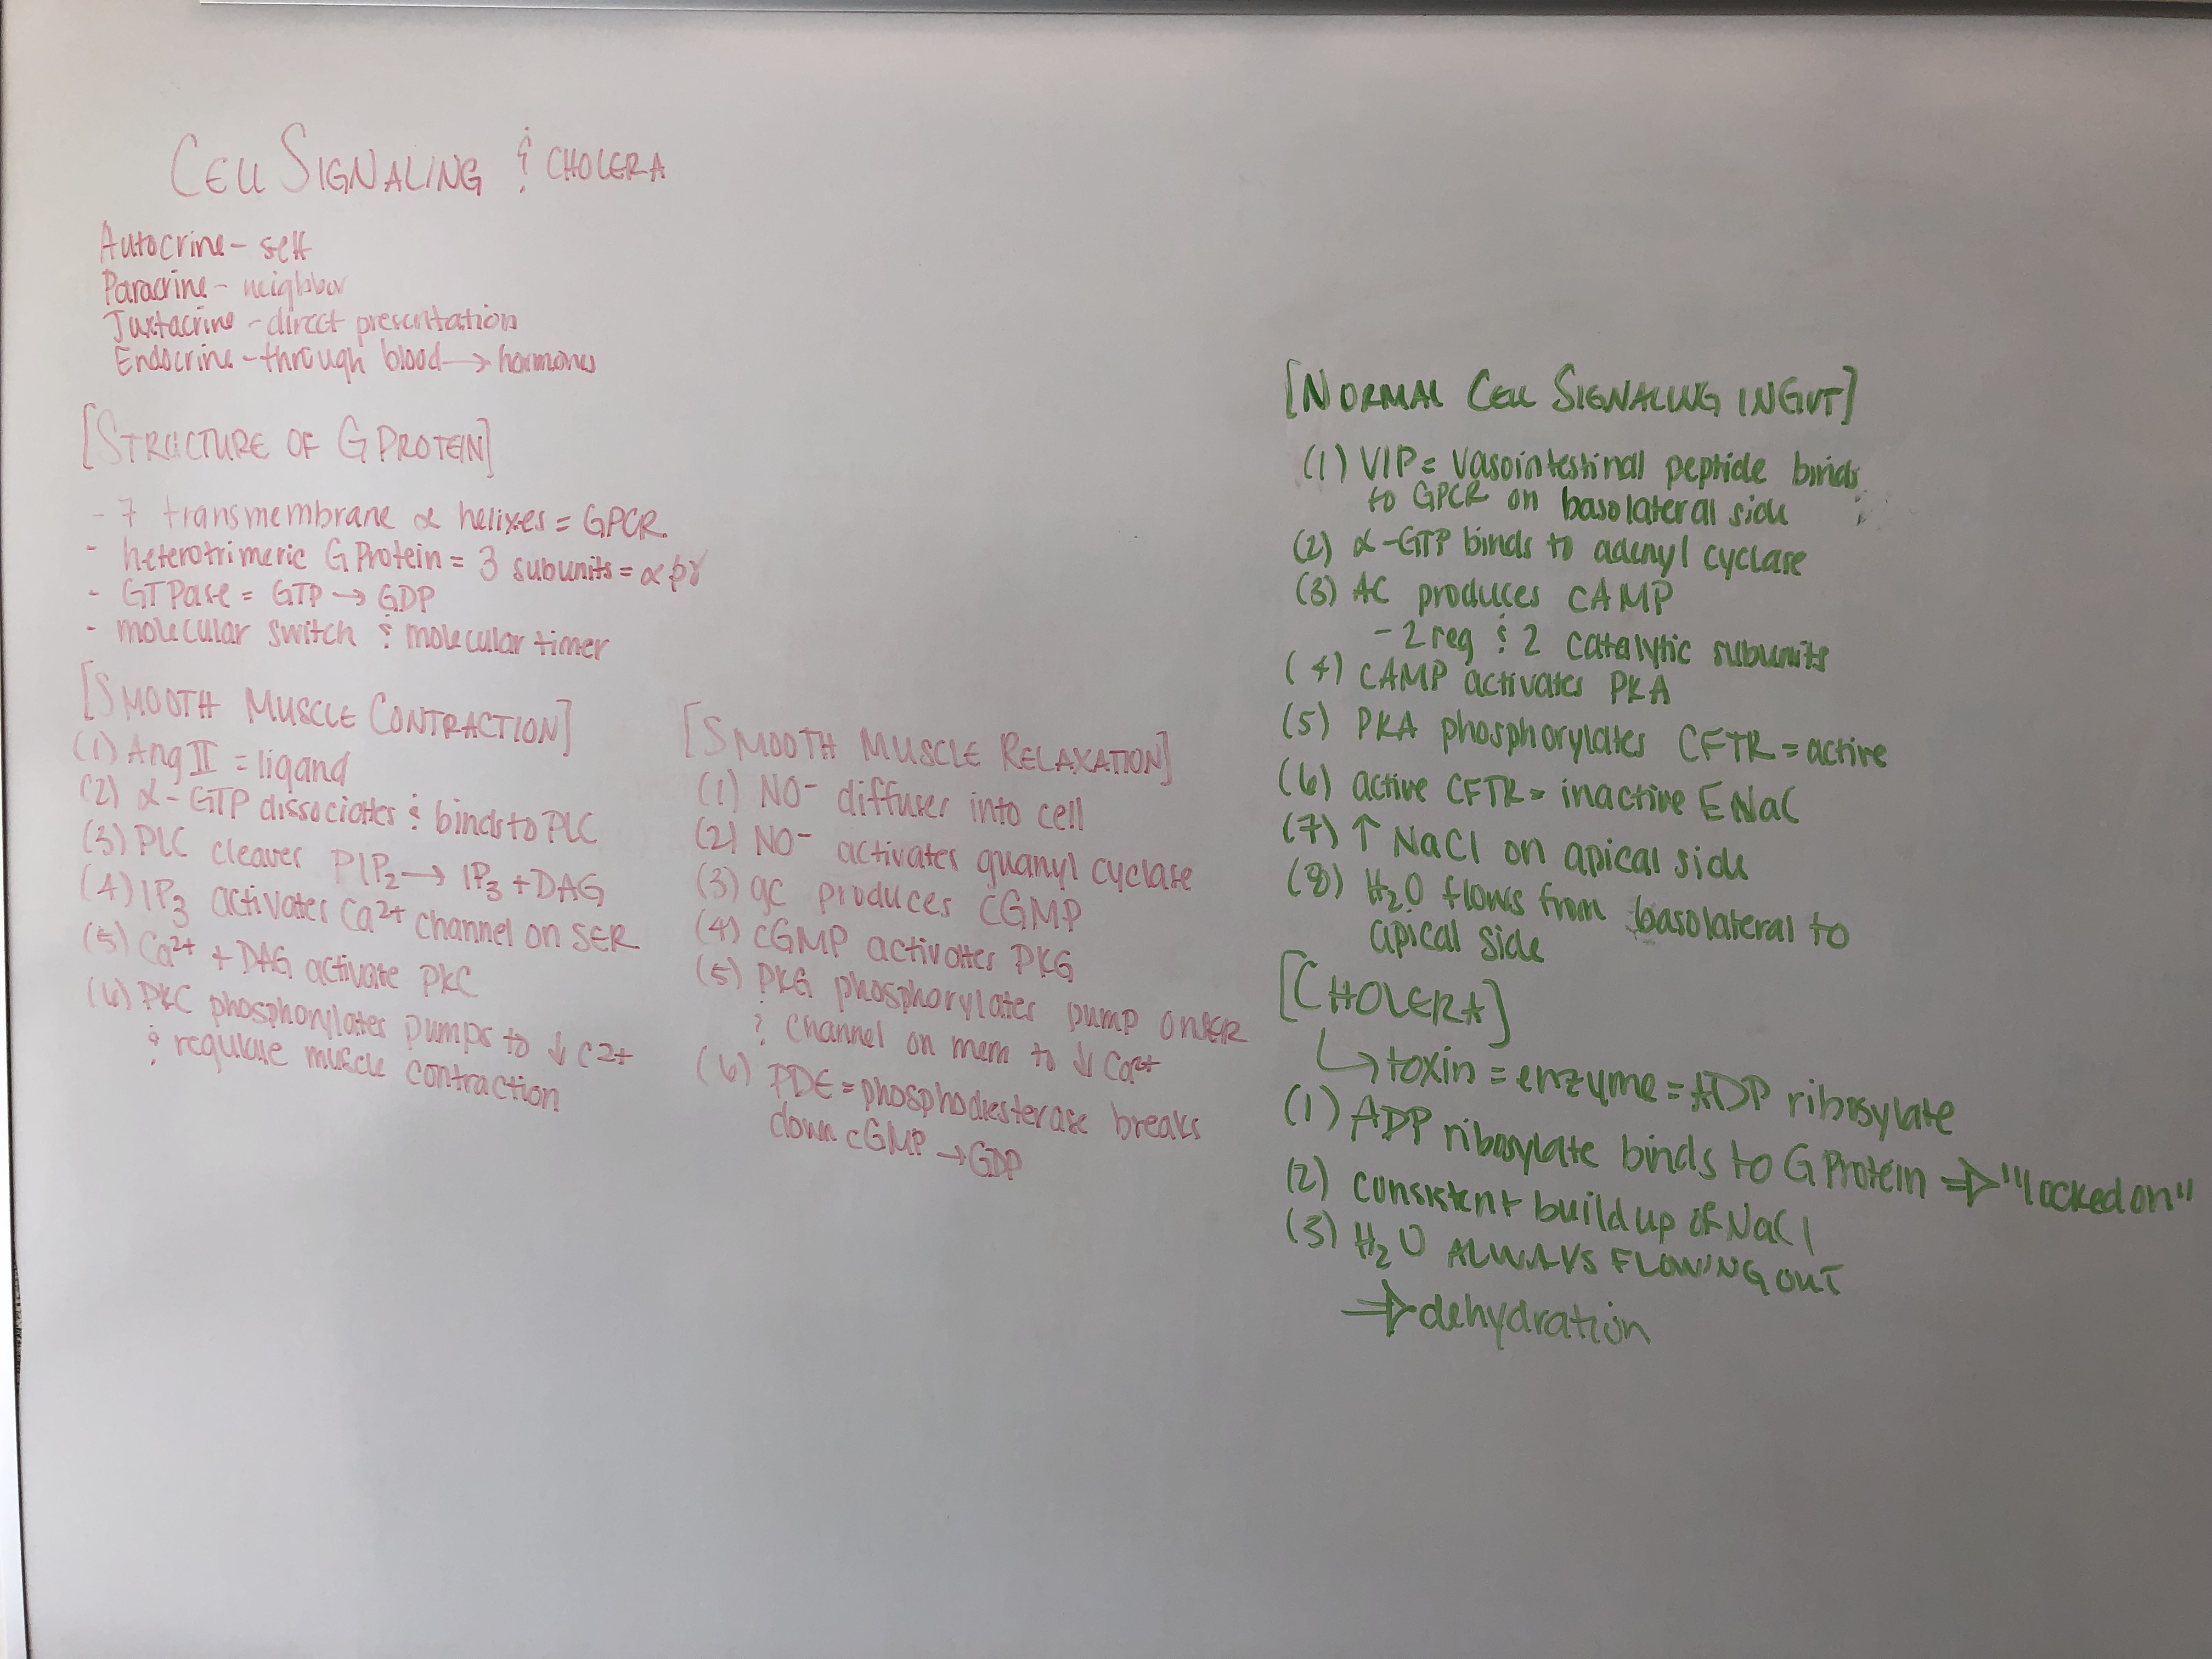 CELL SIGNALING & CHOLERA
Autocrine - self
Paracrine - neighbor
Juxtacrine - direct presentation
Endocrine - through blood → hormones
[STRUCTURE OF G PROTEIN]
- 7 transmembrane α helixes = GPCR
- heterotrimeric G Protein = 3 subunits = αβγ
- GTPase = GTP → GDP
- molecular switch & molecular timer
[SMOOTH MUSCLE CONTRACTION]
(1) Ang II = ligand
(2) α-GTP dissociates & binds to PLC
(3) PLC cleaves PIP₂ → IP₃ + DAG
(4) IP₃ activates Ca²⁺ channel on SER
(5) Ca²⁺ + DAG activate PKC
(6) PKC phosphorylates pumps to ↓ C2+
& regulate muscle contraction
[SMOOTH MUSCLE RELAXATION]
(1) NO⁻ diffuses into cell
(2) NO⁻ activates guanyl cyclase
(3) gc produces cGMP
(4) cGMP activates PKG
(5) PKG phosphorylates pump on SER
& channel on mem to ↓ Ca²⁺
(6) PDE = phosphodiesterase breaks
down cGMP → GDP
[NORMAL CELL SIGNALING IN GUT]
(1) VIP = vasointestinal peptide binds
to GPCR on basolateral side
(2) α-GTP binds to adenyl cyclase
(3) AC produces cAMP
- 2 reg & 2 catalytic subunits
(4) cAMP activates PKA
(5) PKA phosphorylates CFTR = active
(6) active CFTR = inactive ENaC
(7) ↑ NaCl on apical side
(8) H₂O flows from basolateral to
apical side
[CHOLERA]
↳ toxin = enzyme = ADP ribosylate
(1) ADP ribosylate binds to G Protein ⇒ "locked on"
(2) consistent build up of NaCl
(3) H₂O ALWAYS FLOWING OUT
⇒ dehydration